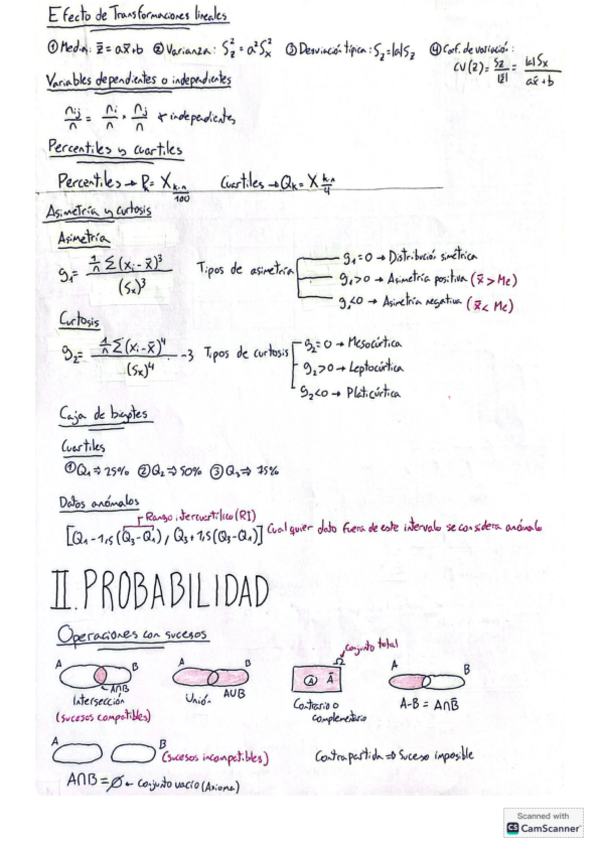 Efecto de Transformaciones lineales
① Media: z̄ = ax̄+b ② Varianza: S²z = a²S²x ③ Desviación típica: Sz = |a|Sz ④ Coef. de variación: CV(z) = Sz/|z̄| = |a|Sx/ax̄+b
Variables dependientes o independientes
nij/n = ni/n · nj/n → independientes
Percentiles y cuartiles
Percentiles → P = X k·n/100 Cuartiles → Qk = X k·n/4
Asimetría y curtosis
Asimetría
g₁ = 1/n Σ(xi - x̄)³/(Sx)³ Tipos de asimetría
g₁=0 → Distribución simétrica
g₁>0 → Asimetría positiva (x̄ > Me)
g₁<0 → Asimetría negativa (x̄ < Me)
Curtosis
g₂ = 1/n Σ(xi - x̄)⁴/(Sx)⁴ -3 Tipos de curtosis
g₂=0 → Mesocúrtica
g₂>0 → Leptocúrtica
g₂<0 → Platicúrtica
Caja de bigotes
Cuartiles
① Q₁ ⇒ 25% ② Q₂ ⇒ 50% ③ Q₃ ⇒ 75%
Datos anómalos
Rango intercuartílico (RI)
[Q₁-1,5(Q₃-Q₁), Q₃+1,5(Q₃-Q₁)] Cualquier dato fuera de este intervalo se considera anómalo
II. PROBABILIDAD
Operaciones con sucesos
Conjunto total
A B A B Ω A B
A Ā
A∩B
Intersección Unión A∪B Contrario o complementario A-B = A∩B̄
(sucesos compatibles)
A B (sucesos incompatibles) Contrapartida ⇒ Suceso imposible
A∩B = ∅ ← Conjunto vacío (Axioma)
Scanned with
CS CamScanner